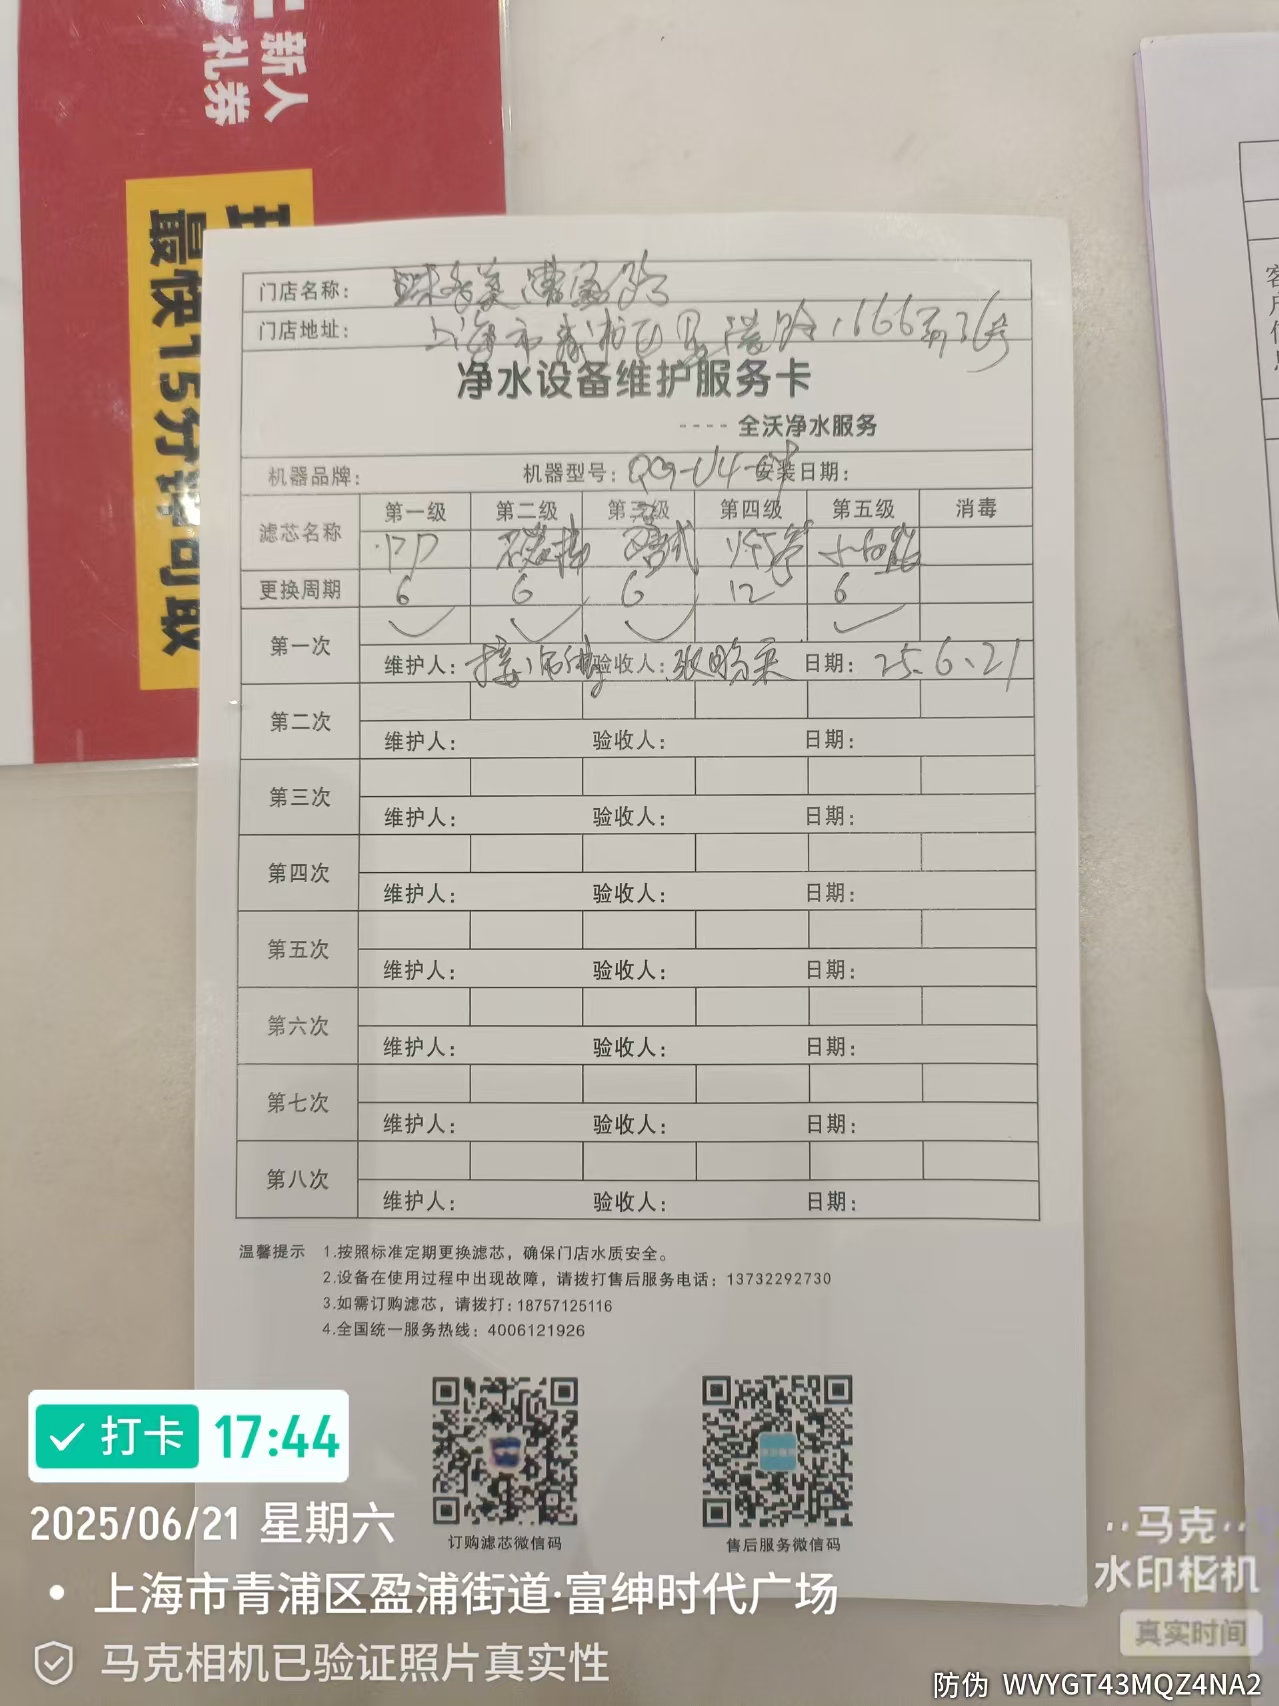 新人
礼券
最快15分钟可取
门店名称：
门店地址： 上海市青浦区 1666弄36号
净水设备维护服务卡
---- 全沃净水服务
机器品牌： 机器型号： 安装日期：
滤芯名称 第一级 第二级 第三级 第四级 第五级 消毒
PP
更换周期 6 6 6 12 6
第一次
维护人： 验收人： 日期： 25.6.21
第二次
维护人： 验收人： 日期：
第三次
维护人： 验收人： 日期：
第四次
维护人： 验收人： 日期：
第五次
维护人： 验收人： 日期：
第六次
维护人： 验收人： 日期：
第七次
维护人： 验收人： 日期：
第八次
维护人： 验收人： 日期：
温馨提示 1.按照标准定期更换滤芯，确保门店水质安全。
2.设备在使用过程中出现故障，请拨打售后服务电话：13732292730
3.如需订购滤芯，请拨打：18757125116
4.全国统一服务热线：4006121926
订购滤芯微信码 售后服务微信码
打卡 17:44
2025/06/21 星期六
上海市青浦区盈浦街道·富绅时代广场
马克相机已验证照片真实性
马克
水印相机
真实时间
防伪 WVYGT43MQZ4NA2